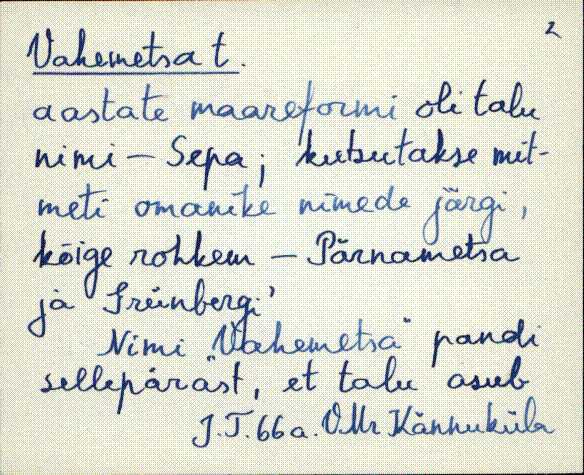 2
Vahemetsa t.
aastate maareformi oli talu
nimi – Sepa; kutsutakse mit-
meti omanike nimede järgi,
kõige rohkem – Pärnametsa
ja Grünbergi.
Nimi "Vahemetsa" pandi
sellepärast, et talu asub
J.T. 66 a. V.Mr Kännuküla